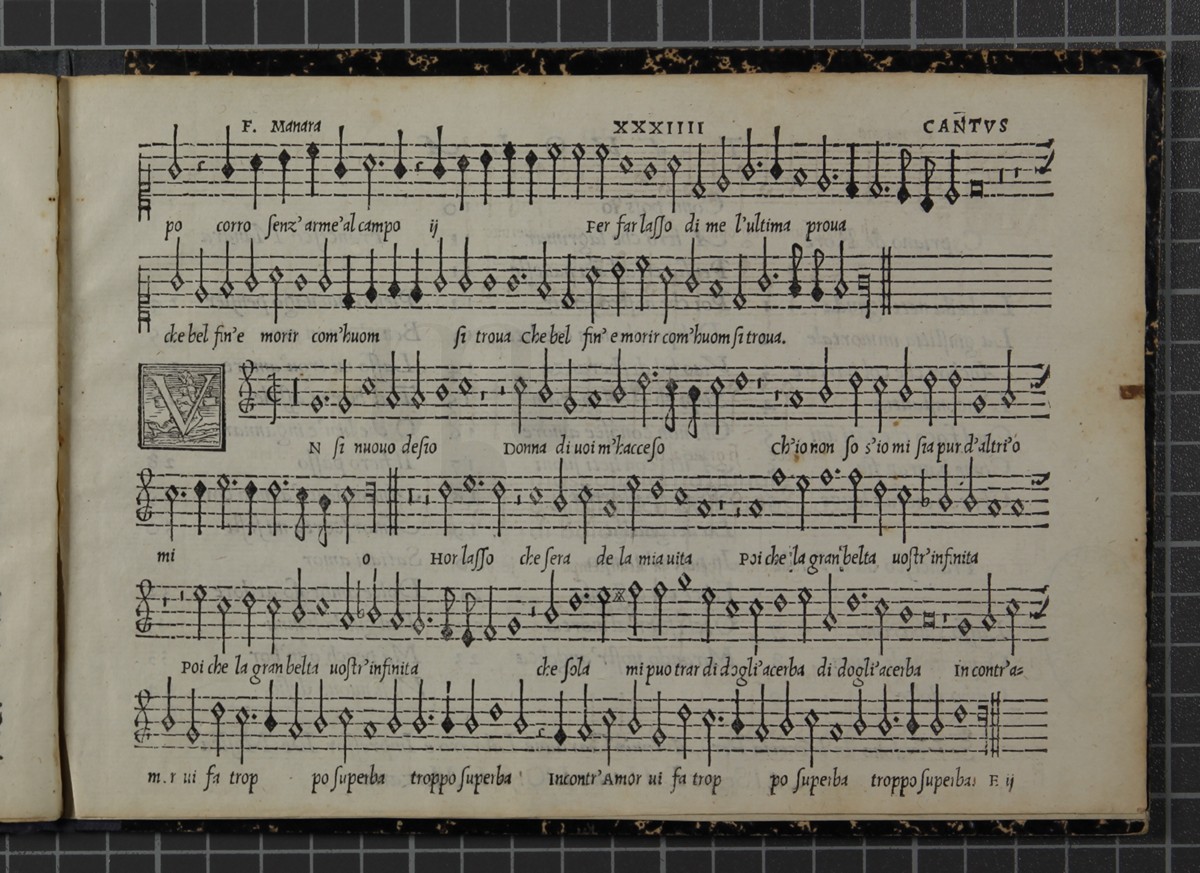 F. Manara XXXIIII CANTVS
po corro senz'arme'al campo ij Per far lasso di me l'ultima proua
che bel fin'e morir com'huom si troua Che bel fin'e morir com'huom si troua.
V N si nuouo desio Donna di uoi m'ha acceso Ch'io non so s'io mi sia pur d'altri'o
mi o Hor lasso che sera de la mia uita Poi che la gran belta uostr'infinita
Poi che la gran belta uostr'infinita che sola mi puo trar di dogli'acerba di dogli'acerba In contr'a=
m.r ui fa trop po superba troppo superba Incontr'Amor ui fa trop po superba troppo superba. E ij